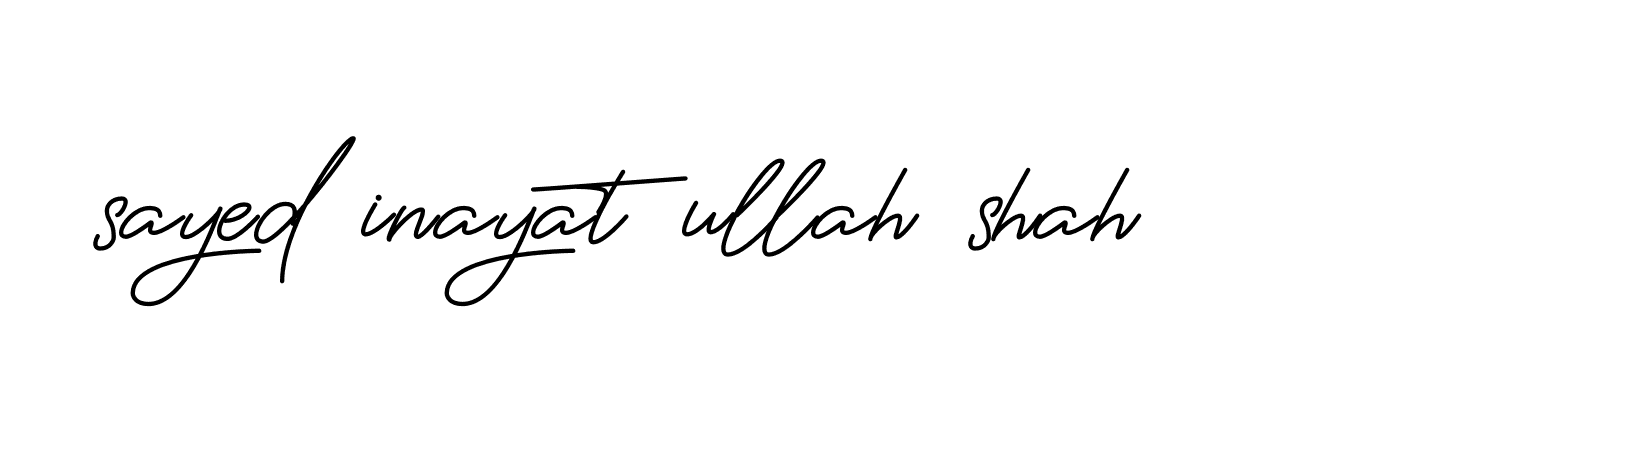 sayed inayat ullah shah